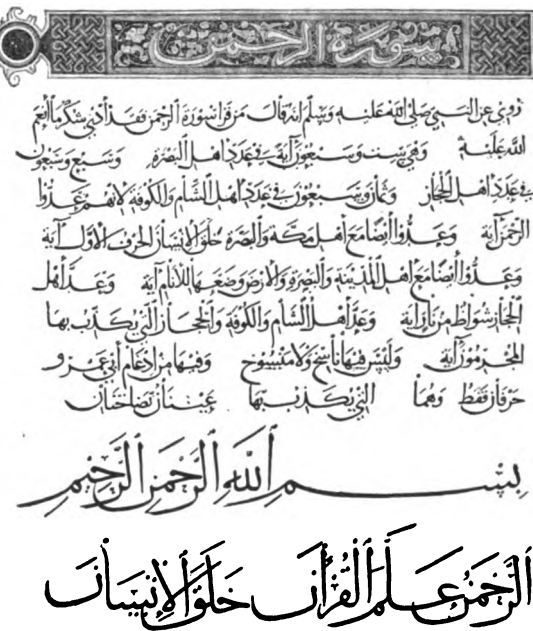 سورة الرحمن
روي عن النبي صلى الله عليه وسلم انه قال من قرا سورة الرحمن فقد أدى شكر ما أنعم
الله عليه وهي ست وسبعون آية في عدد اهل البصرة وسبع وسبعون
في عدد اهل الحجاز وثمان وسبعون في عدد اهل الشأم والكوفة لانهم عدوا
الرحمن آية وعدوا أيضا مع اهل مكة والبصرة خلق الانسان الحرف الاول آية
وعدوا أيضا مع اهل المدينة والبصرة والارض وضعها للانام آية وعد أهل
الحجاز شواظ من نار آية وعد أهل الشأم والكوفة والحجاز التي يكذب بها
المجرمون آية وليس فيها ناسخ ولا منسوخ وفيها من ادغام أبي عمرو
حرفان فقط وهما التي يكذب بها عينان نضاختان
بِسْمِ ٱللَّهِ ٱلرَّحْمَٰنِ ٱلرَّحِيمِ
ٱلرَّحْمَٰنُ عَلَّمَ ٱلْقُرْآنَ خَلَقَ ٱلْإِنسَانَ